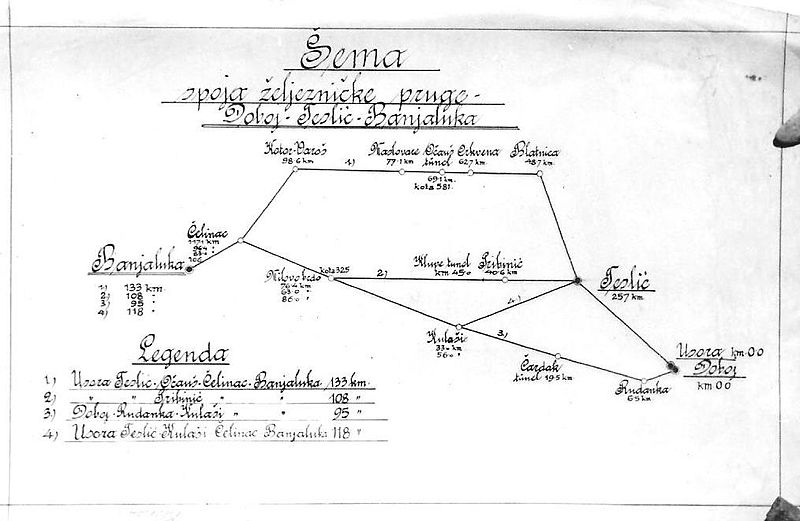 Šema
spoja željezničke pruge -
Doboj - Teslić - Banjaluka
Kotor-Varoš
98·6 km
1)
Maslovare
77·1 km
Očauš
tunel
69·1 km.
kota 581.
Crkvena
62·7 km.
Blatnica
48·7 km.
Čelinac
117·1 km
Banjaluka
1) 133 km.
2) 108 "
3) 95 "
4) 118 "
kota 325
76·4 km
63·0 "
86·0 "
2)
tunel
km 45·0
Pribinić
40·6 km
Teslić
25·7 km
4)
Kulaši
33·0 km
56·0 "
3)
Čardak
tunel 19·5 km
Rudanka
6·5 km
Usora km 0·0
Doboj
km 0·0
Legenda
1) Usora Teslić - Očauš - Čelinac - Banjaluka 133 km.
2) " " Pribinić " " 108 "
3) Doboj - Rudanka - Kulaši " " 95 "
4) Usora Teslić - Kulaši Čelinac Banjaluka 118 "